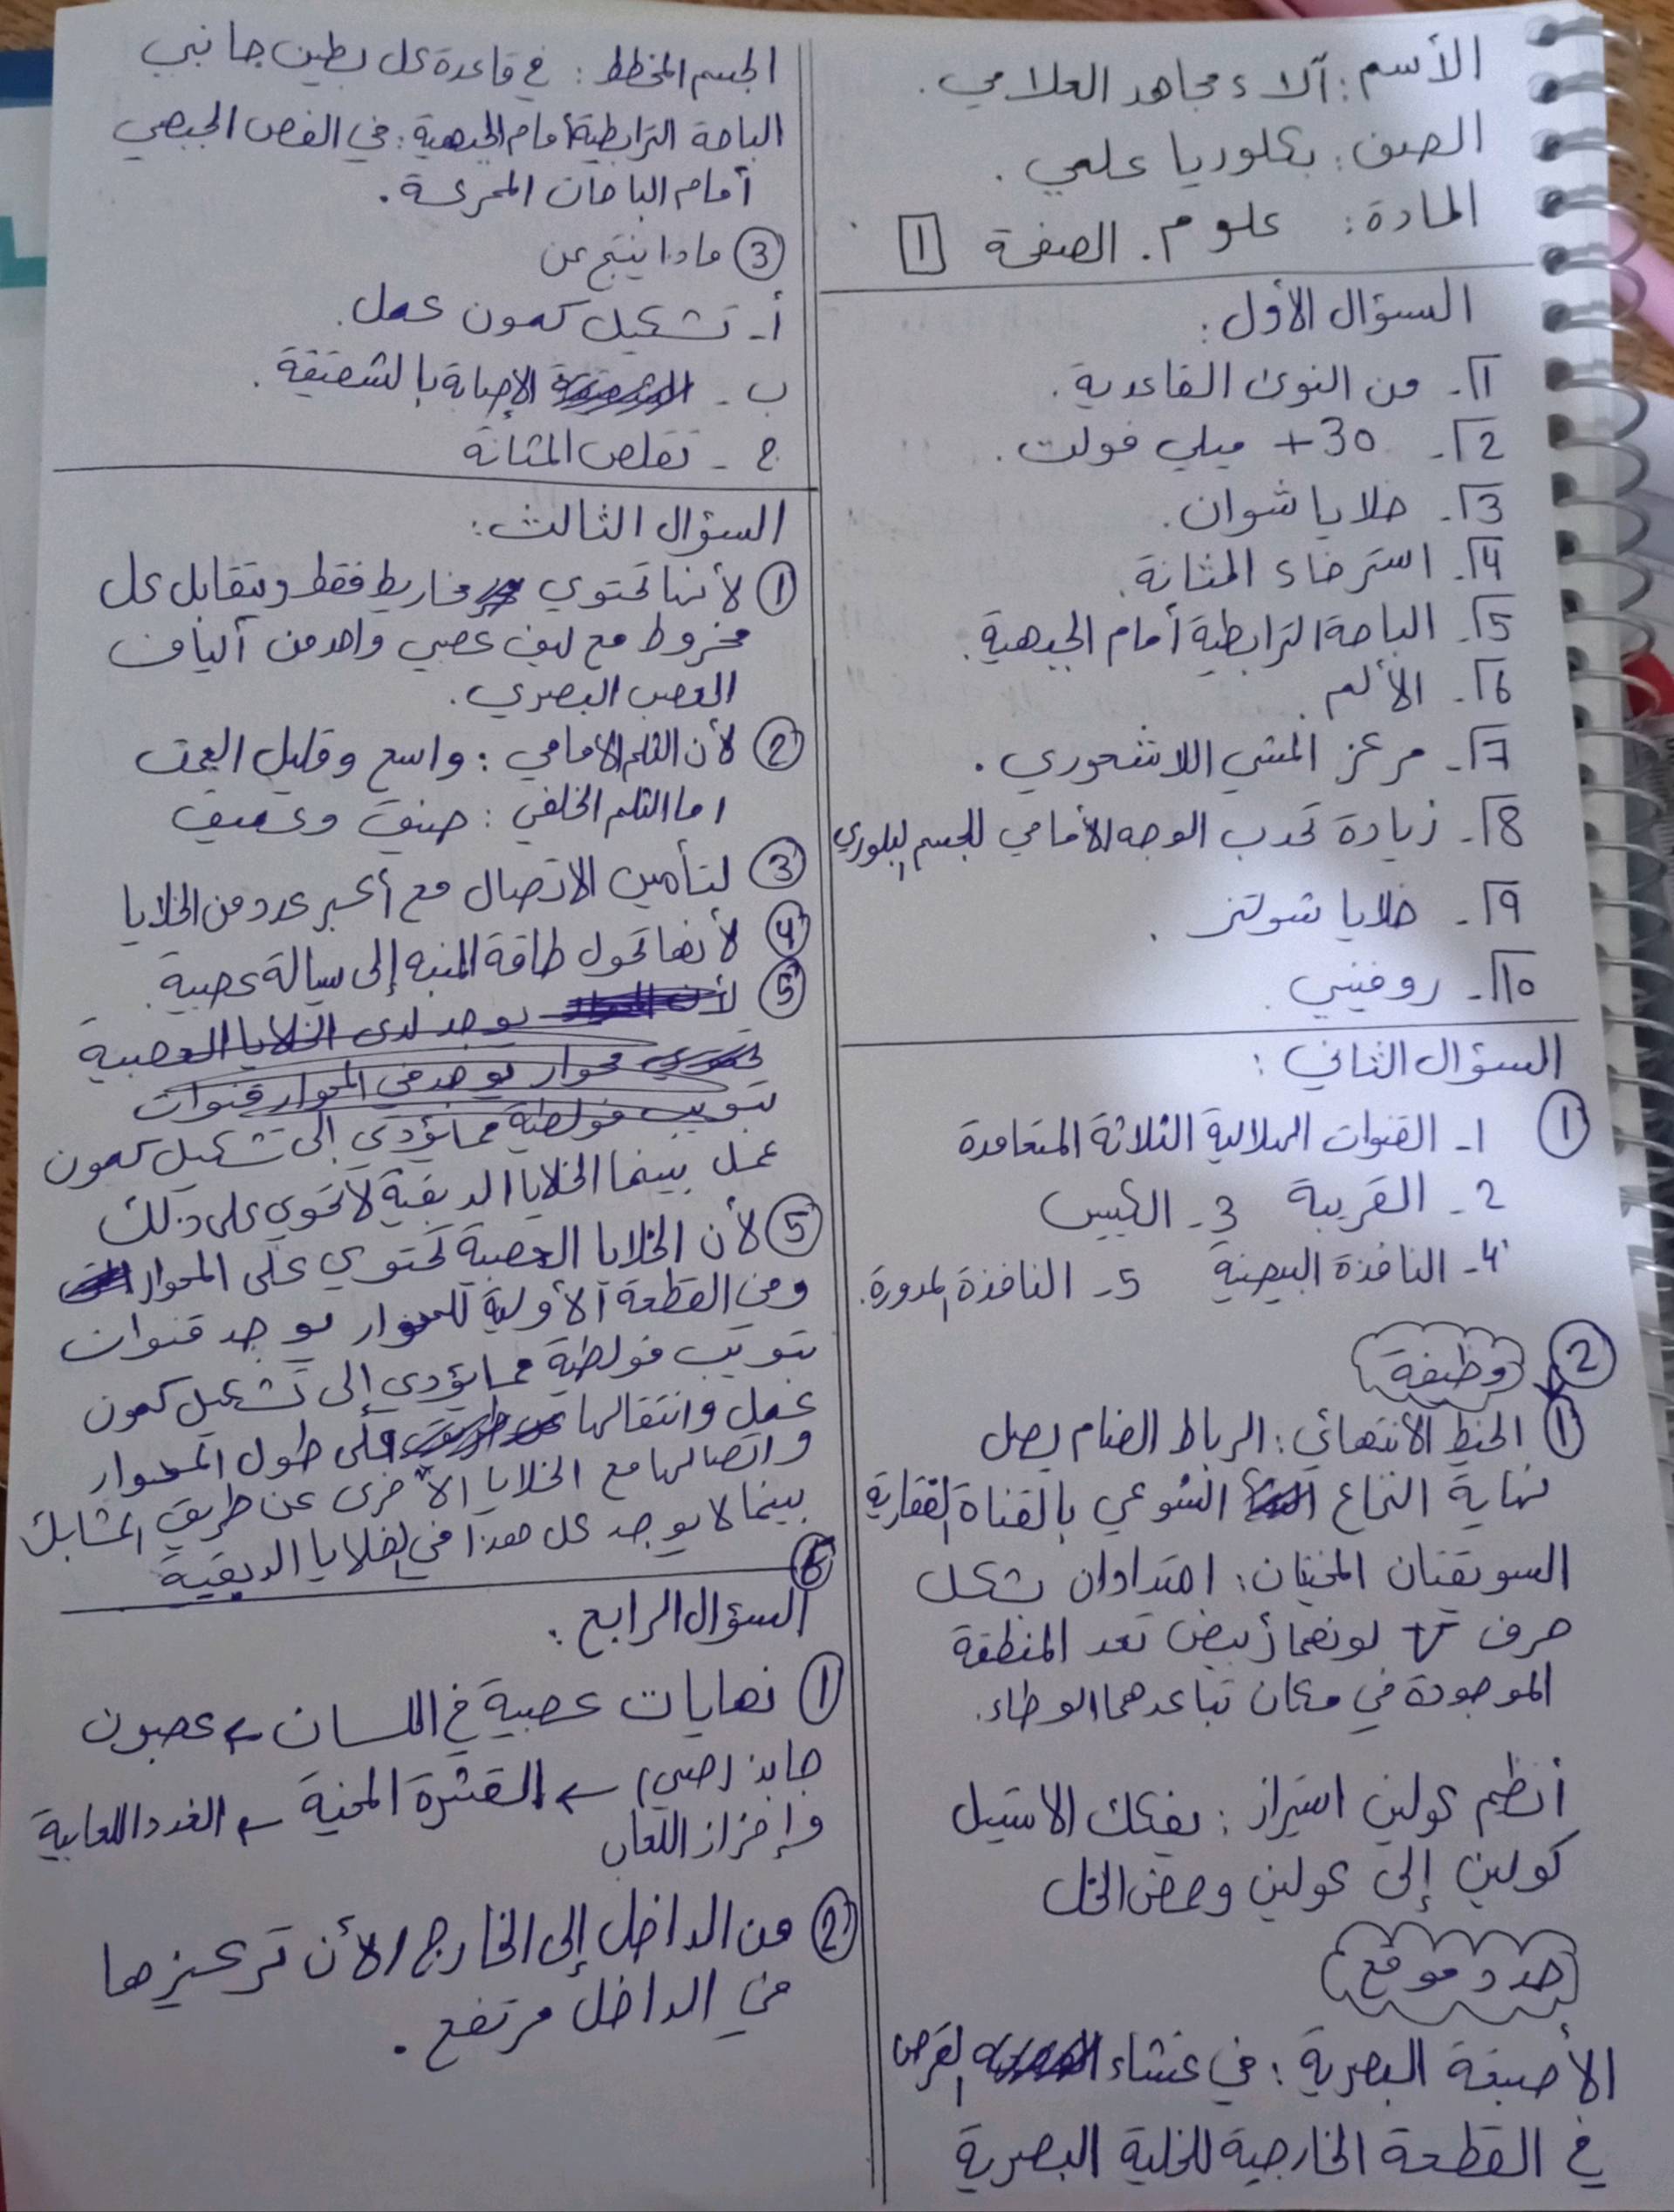 الأسم : آلاء مجاهد العلامي .
الصف : بكلوريا علمي .
المادة : علوم . الصفحة 1
السؤال الأول :
1- من النوى القاعدية .
2- +30 ميلي فولت .
3- خلايا شوان .
4- استرخاء المثانة .
5- الباحة الترابطية أمام الجبهية .
6- الألم .
7- مركز المشي اللاشعوري .
8- زيادة تحدب الوجه الأمامي للجسم البلوري
9- خلايا شولتز .
10- روفيني .
السؤال الثاني :
1 1- القنوات الهلالية الثلاثة المتعامدة
2- القريبة 3- الكييس
4- النافذة البيضية 5- النافذة المدورة .
2 وظيفة
1 الخيط الانتهائي : الرباط الضام يصل
نهاية النخاع الشوكي بالقناة الفقارية
السويقتان المخيتان : امتدادان بشكل
حرف V لونهما أبيض تعد المنطقة
الموجودة في مكان تباعدهما الوطاء .
أنظيم كولين استيراز : يفكك الاستيل
كولين إلى كولين وحمض الخل
حدد موقع
الأصبغة البصرية : في غشاء القرص
في القطعة الخارجية للخلية البصرية
الجسم المخطط : في قاعدة كل بطين جانبي
الباحة الترابطية أمام الجبهية : في الفص الجبهي
أمام الباحات المحركة .
3 ماذا ينتج عن
أ- تشكيل كمون عمل .
ب- الإصابة بالشقيقة .
ج- تقلص المثانة
السؤال الثالث :
1 لأنها تحتوي مخاريط فقط ويتقابل كل
مخروط مع ليف عصبي واحد من ألياف
العصب البصري .
2 لأن الثلم الامامي : واسع وقليل العمق
اما الثلم الخلفي : ضيق وعميق
3 لتأمين الاتصال مع أكبر عدد من الخلايا
4 لأنها تحول طاقة المنبه إلى سيالة عصبية .
5 لأن يوجد لدى الخلايا العصبية
محوار يوجد في المحوار قنوات
تبويب فولطية مما يؤدي إلى تشكيل كمون
عمل بينما الخلايا الدبقية لا تحوي على ذلك
5 لأن الخلايا العصبية تحتوي على المحوار
وفي القطعة الأولية للمحوار يوجد قنوات
تبويب فولطية مما يؤدي إلى تشكيل كمون
عمل وانتقالها على طول المحوار
واتصالها مع الخلايا الأخرى عن طريق المشابك
بينما لا يوجد كل هذا في الخلايا الدبقية
6
السؤال الرابع :
1 نهايات عصبية في اللسان ← عصبون
جابذ (حسي) ← القشرة المخية ← الغدد اللعابية
وإفراز اللعاب
2 من الداخل إلى الخارج / لأن تركيزها
في الداخل مرتفع .